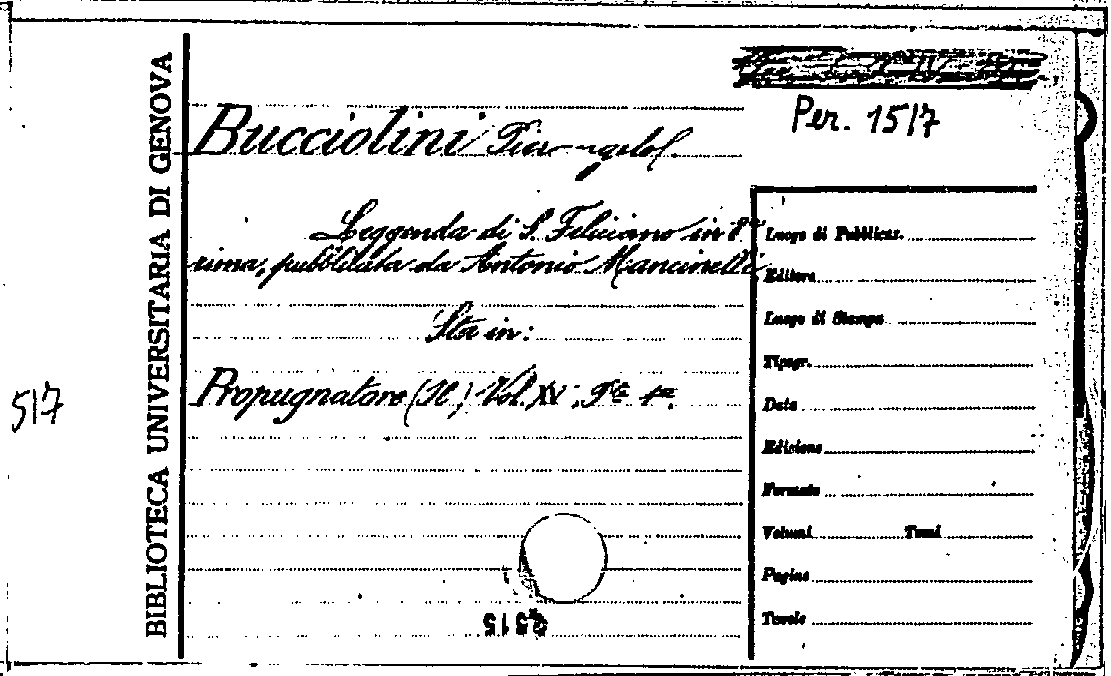 BIBLIOTECA UNIVERSITARIA DI GENOVA
Per. 1517
Bucciolini Pierangelo.
Leggenda di S. Feliciano in 8ª
rima, pubblicata da Antonio Mancinelli
Sta in:
Propugnatore (Il) Vol. XV. Pte 1a.
517
Luogo di Pubblicaz.
Editore
Luogo di Stampa
Tipogr.
Data
Edizione
Formato
Volumi Tomi
Pagine
Tavole